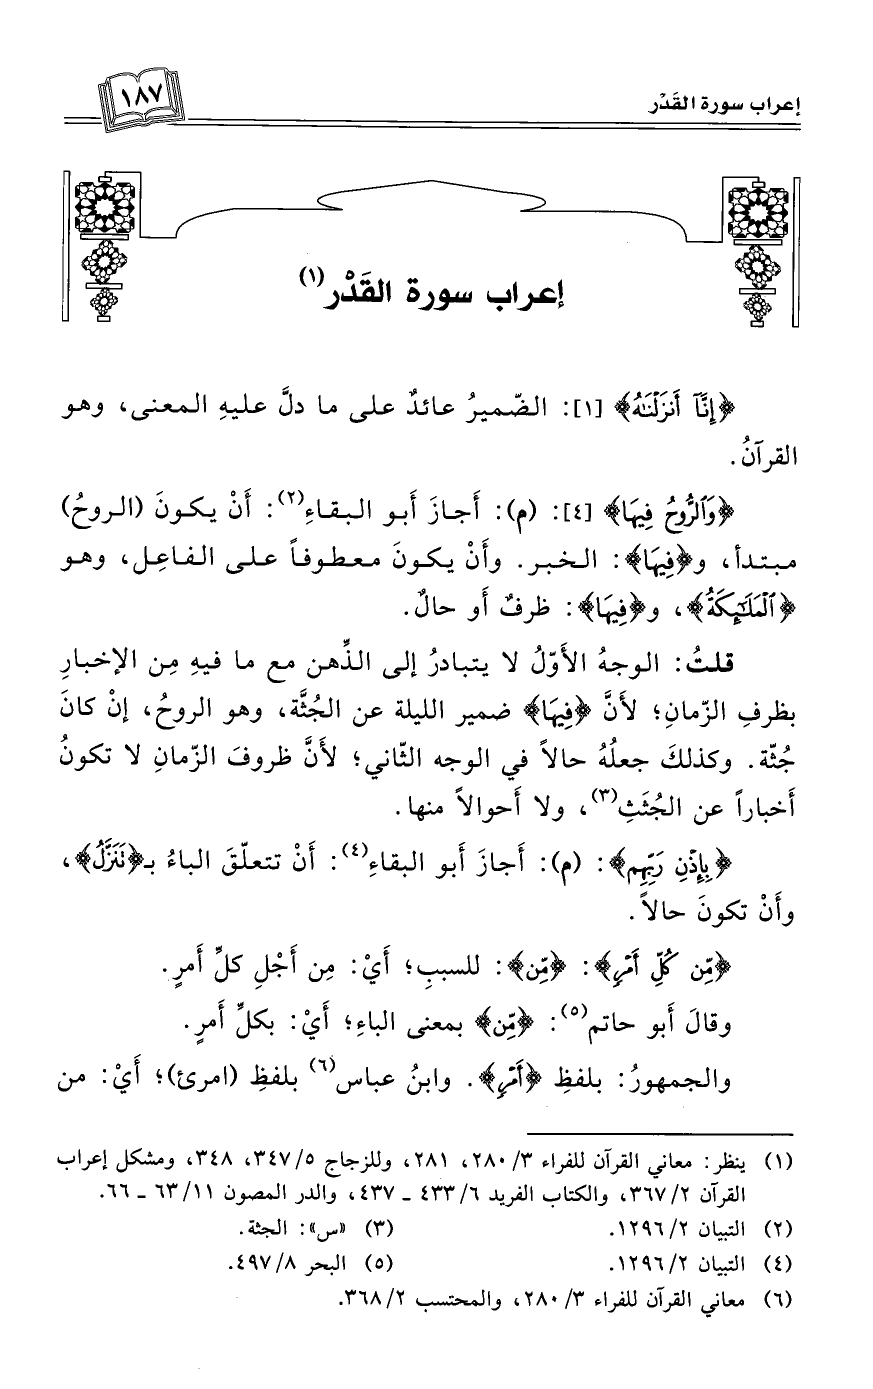 إعراب سورة القَدْر
١٨٧
إعراب سورة القَدْر(١)
﴿إِنَّآ أَنزَلْنَٰهُ﴾ [١]: الضّميرُ عائدٌ على ما دلَّ عليهِ المعنى، وهو
القرآنُ.
﴿وَٱلرُّوحُ فِيهَا﴾ [٤]: (م): أَجازَ أَبو البقاءِ(٢): أَنْ يكونَ (الروحُ)
مبتدأ، و﴿فِيهَا﴾: الخبر. وأَنْ يكونَ معطوفاً على الفاعِل، وهو
﴿ٱلْمَلَٰٓئِكَةُ﴾، و﴿فِيهَا﴾: ظرفٌ أَو حالٌ.
قلتُ: الوجهُ الأَوّلُ لا يتبادرُ إلى الذِّهن مع ما فيهِ مِن الإخبارِ
بظرفِ الزّمانِ؛ لأَنَّ ﴿فِيهَا﴾ ضمير الليلة عن الجُثَّة، وهو الروحُ، إنْ كانَ
جُثّة. وكذلكَ جعلُهُ حالاً في الوجه الثّاني؛ لأَنَّ ظروفَ الزّمانِ لا تكونُ
أَخباراً عن الجُثَثِ(٣)، ولا أَحوالاً منها.
﴿بِإِذْنِ رَبِّهِم﴾: (م): أَجازَ أَبو البقاءِ(٤): أَنْ تتعلّقَ الباءُ بـ﴿نَنَزَّلُ﴾،
وأَنْ تكونَ حالاً.
﴿مِّن كُلِّ أَمْرٍ﴾: ﴿مِّن﴾: للسببِ؛ أَيْ: مِن أَجْلِ كلِّ أَمرٍ.
وقالَ أَبو حاتم(٥): ﴿مِّن﴾ بمعنى الباءِ؛ أَيْ: بكلِّ أَمرٍ.
والجمهورُ: بلفظِ ﴿أَمْرٍ﴾. وابنُ عباس(٦) بلفظِ (امرئ)؛ أَيْ: من
(١) ينظر: معاني القرآن للفراء ٣/ ٢٨٠، ٢٨١، وللزجاج ٥/ ٣٤٧، ٣٤٨، ومشكل إعراب
القرآن ٢/ ٣٦٧، والكتاب الفريد ٦/ ٤٣٣ ـ ٤٣٧، والدر المصون ١١/ ٦٣ ـ ٦٦.
(٢) التبيان ٢/ ١٢٩٦. (٣) «س»: الجثة.
(٤) التبيان ٢/ ١٢٩٦. (٥) البحر ٨/ ٤٩٧.
(٦) معاني القرآن للفراء ٣/ ٢٨٠، والمحتسب ٢/ ٣٦٨.